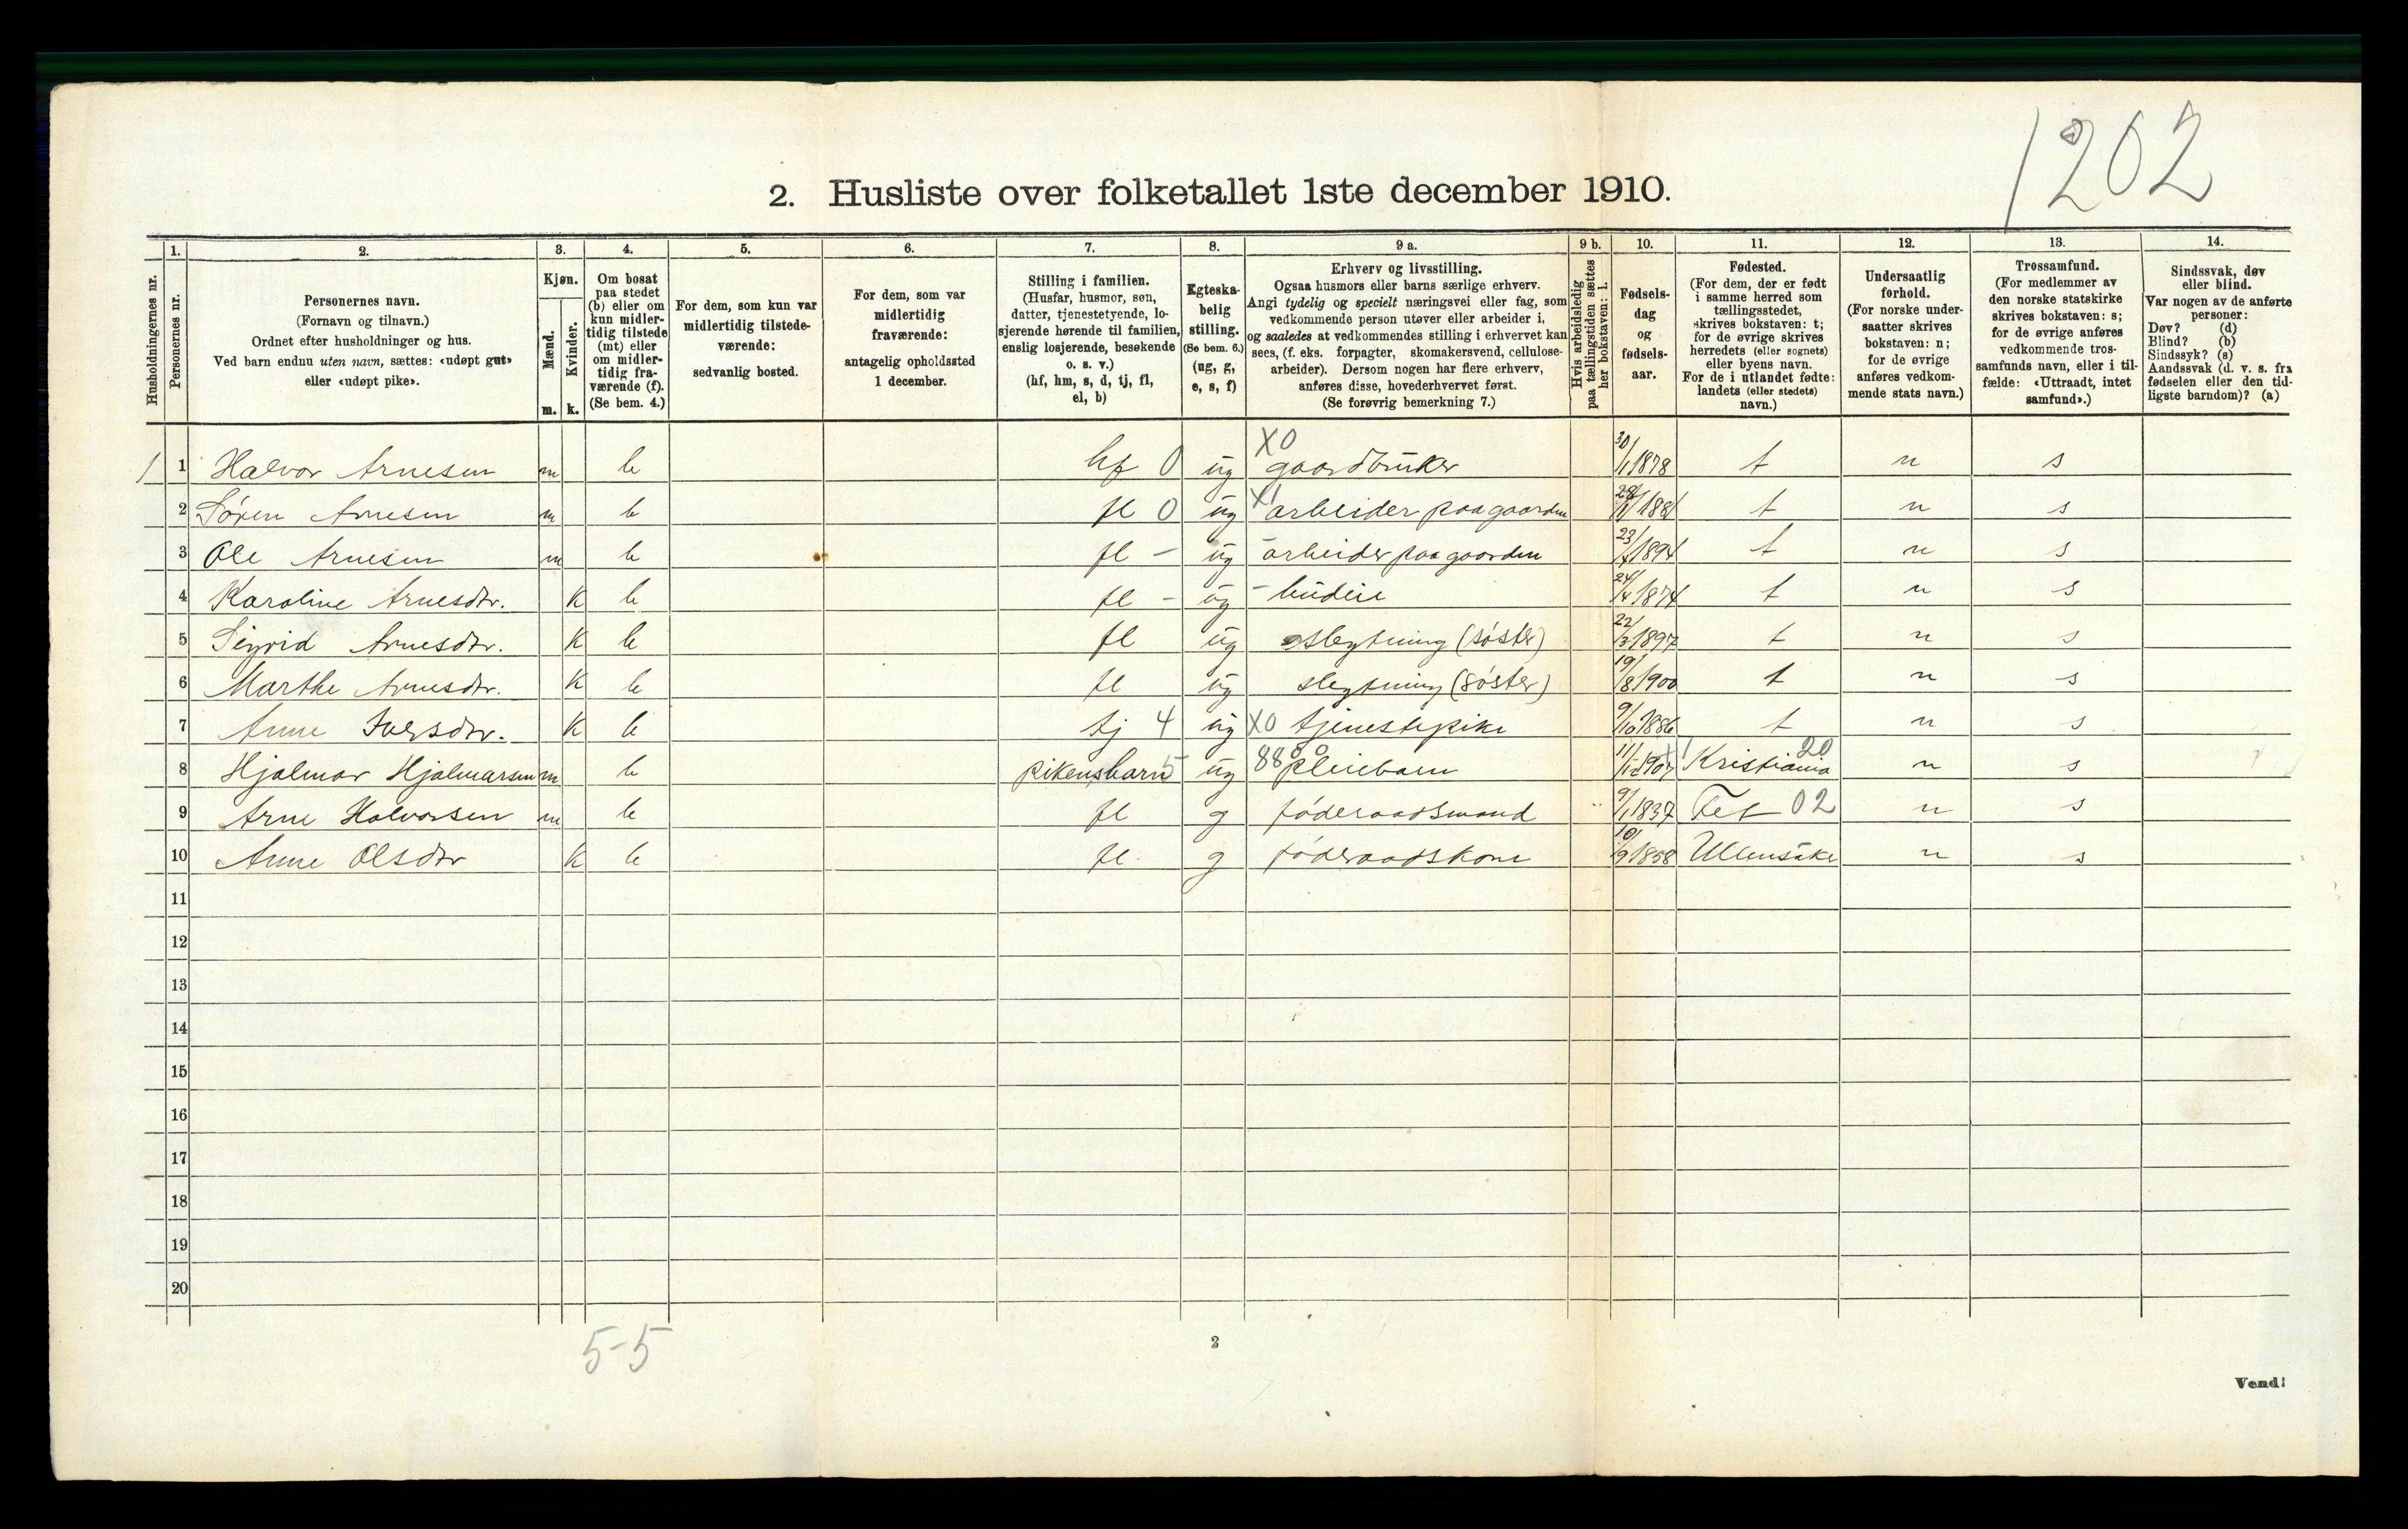 1202
2. Husliste over folketallet 1ste december 1910.
Husholdningernes nr.
1. Personernes nr.
2. Personernes navn.
(Fornavn og tilnavn.)
Ordnet efter husholdninger og hus.
Ved barn endnu uten navn, sættes: «udøpt gut»
eller «udøpt pike».
3. Kjøn.
Mænd. m.
Kvinder. k.
4. Om bosat
paa stedet
(b) eller om
kun midler-
tidig tilstede
(mt) eller
om midler-
tidig fra-
værende (f).
(Se bem. 4.)
5. For dem, som kun var
midlertidig tilstede-
værende:
sedvanlig bosted.
6. For dem, som var
midlertidig
fraværende:
antagelig opholdssted
1 december.
7. Stilling i familien.
(Husfar, husmor, søn,
datter, tjenestetyende, lo-
sjerende hørende til familien,
enslig losjerende, besøkende
o. s. v.)
(hf, hm, s, d, tj, fl,
el, b)
8. Egteska-
belig
stilling.
(Se bem. 6.)
(ug, g,
e, s, f)
9 a. Erhverv og livsstilling.
Ogsaa husmors eller barns særlige erhverv.
Angi tydelig og specielt næringsvei eller fag, som
vedkommende person utøver eller arbeider i,
og saaledes at vedkommendes stilling i erhvervet kan
sees, (f. eks. forpagter, skomakersvend, cellulose-
arbeider). Dersom nogen har flere erhverv,
anføres disse, hovederhvervet først.
(Se forøvrig bemerkning 7.)
9 b. Hvis arbeidsledig
paa tællingstiden sættes
her bokstaven: l.
10. Fødsels-
dag
og
fødsels-
aar.
11. Fødested.
(For dem, der er født
i samme herred som
tællingsstedet,
skrives bokstaven: t;
for de øvrige skrives
herredets (eller sognets)
eller byens navn.
For de i utlandet fødte:
landets (eller stedets)
navn.)
12. Undersaatlig
forhold.
(For norske under-
saatter skrives
bokstaven: n;
for de øvrige
anføres vedkom-
mende stats navn.)
13. Trossamfund.
(For medlemmer av
den norske statskirke
skrives bokstaven: s;
for de øvrige anføres
vedkommende tros-
samfunds navn, eller i til-
fælde: «Uttraadt, intet
samfund».)
14. Sindssvak, døv
eller blind.
Var nogen av de anførte
personer:
Døv? (d)
Blind? (b)
Sindssyk? (s)
Aandssvak (d. v. s. fra
fødselen eller den tid-
ligste barndom)? (a)
1 1 Halvor Arnesen m b hf 0 ug X0 gaardbruker 30/1 1878 t n s
2 Søren Arnesen m b fl 0 ug X1 arbeider paa gaarden 1881 t n s
3 Ole Arnesen m b fl - ug - arbeider paa gaarden 1894 t n s
4 Karoline Arnesdtr. k b fl - ug - budeie 24/4 1874 t n s
5 Sigrid Arnesdtr. k b fl ug slegtning (søster) 1897 t n s
6 Marthe Arnesdtr. k b fl ug slegtning (søster) 19/8 1900 t n s
7 Anne Iversdtr. k b tj 4 ug X0 tjenestepike 9/10 1886 t n s
8 Hjalmar Hjalmarsen m b pikens barn 5 ug 88 pleiebarn 1907 Kristiania 20 n s
9 Arne Halvorsen m b fl g føderaadsmand 9/1 1837 Fet 02 n s
10 Anne Olsdtr k b fl g føderaadskone 10/9 1858 Ullensaker n s
11
12
13
14
15
16
17
18
19
20
5-5
2
Vend!